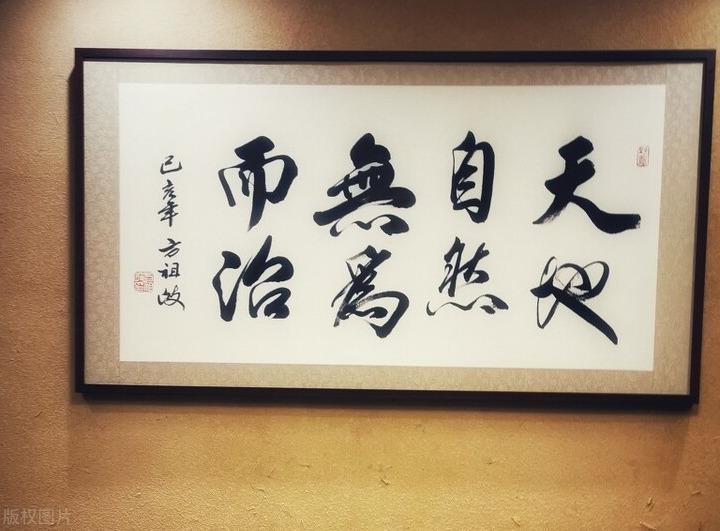 天地
自然
無為
而治
己亥年 方祖
版权图片